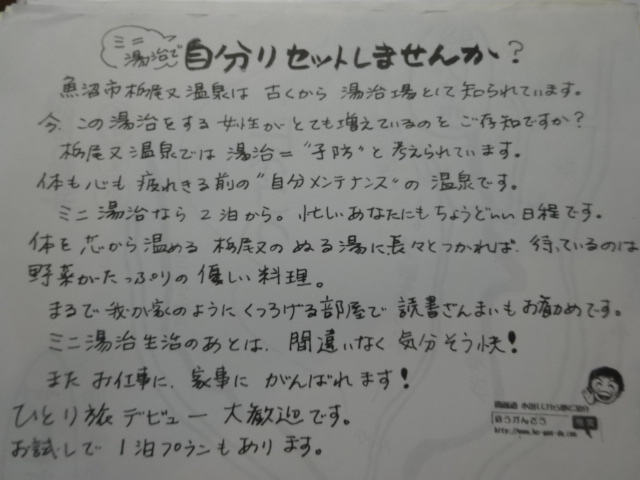 ミニ湯治で
自分リセットしませんか?
魚沼市栃尾又温泉は 古くから 湯治場として知られています。
今、この湯治をする女性がとても増えているのをご存知ですか?
栃尾又温泉では 湯治="予防"と考えられています。
体も心も 疲れきる前の"自分メンテナンス"の 温泉です。
ミニ湯治なら 2泊から。忙しいあなたにもちょうどいい日程です。
体を芯から温める 栃尾又のぬる湯に長々とつかれば、待っているのは
野菜がたっぷりの優しい料理。
まるで我が家のように くつろげる部屋で 読書ざんまいもお勧めです。
ミニ湯治生活のあとは、間違いなく 気分そう快!
また お仕事に、家事に がんばれます!
ひとり旅デビュー 大歓迎です。
お試しで 1泊プランもあります。
ほうがんどう